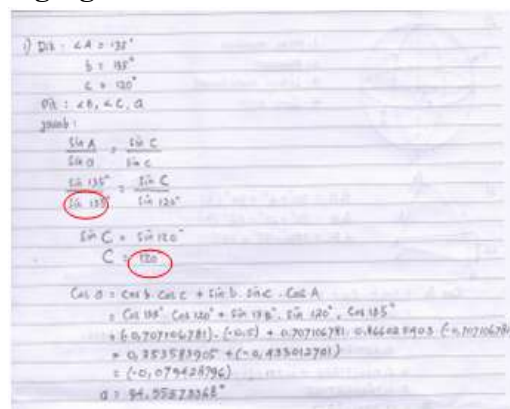 1) Dik : ∠A = 135°
b = 135°
c = 120°
Dit : ∠B, ∠C, a
Jawab :
Sin A / Sin a = Sin C / Sin c
Sin 135° / Sin 135° = Sin C / Sin 120°
Sin C = Sin 120°
C = 120
Cos a = Cos b. Cos c + Sin b. Sin c . Cos A
= Cos 135°. Cos 120° + Sin 135°. Sin 120°. Cos 135°
= (-0,707106781). (-0,5) + 0,707106781. 0,866025403 (-0,70710678
= 0,353583905 + (-0,433012701)
= (-0,079428796)
a = 94,55573368°